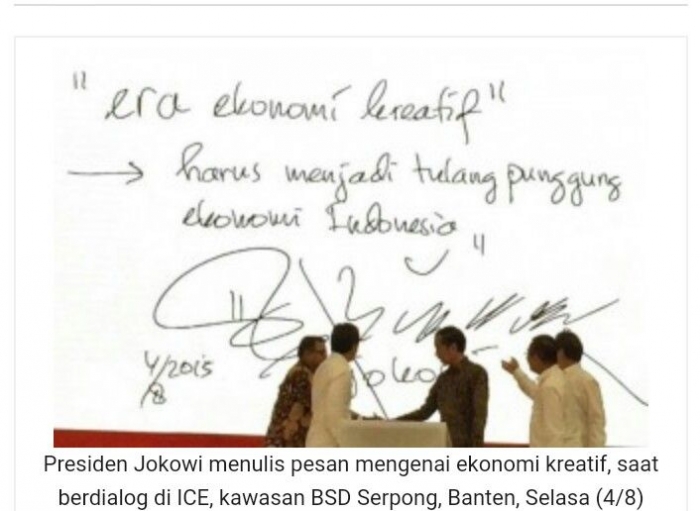 " era ekonomi kreatif "
→ harus menjadi tulang punggung
ekonomi Indonesia "
4/2015
/8
Joko
Presiden Jokowi menulis pesan mengenai ekonomi kreatif, saat
berdialog di ICE, kawasan BSD Serpong, Banten, Selasa (4/8)